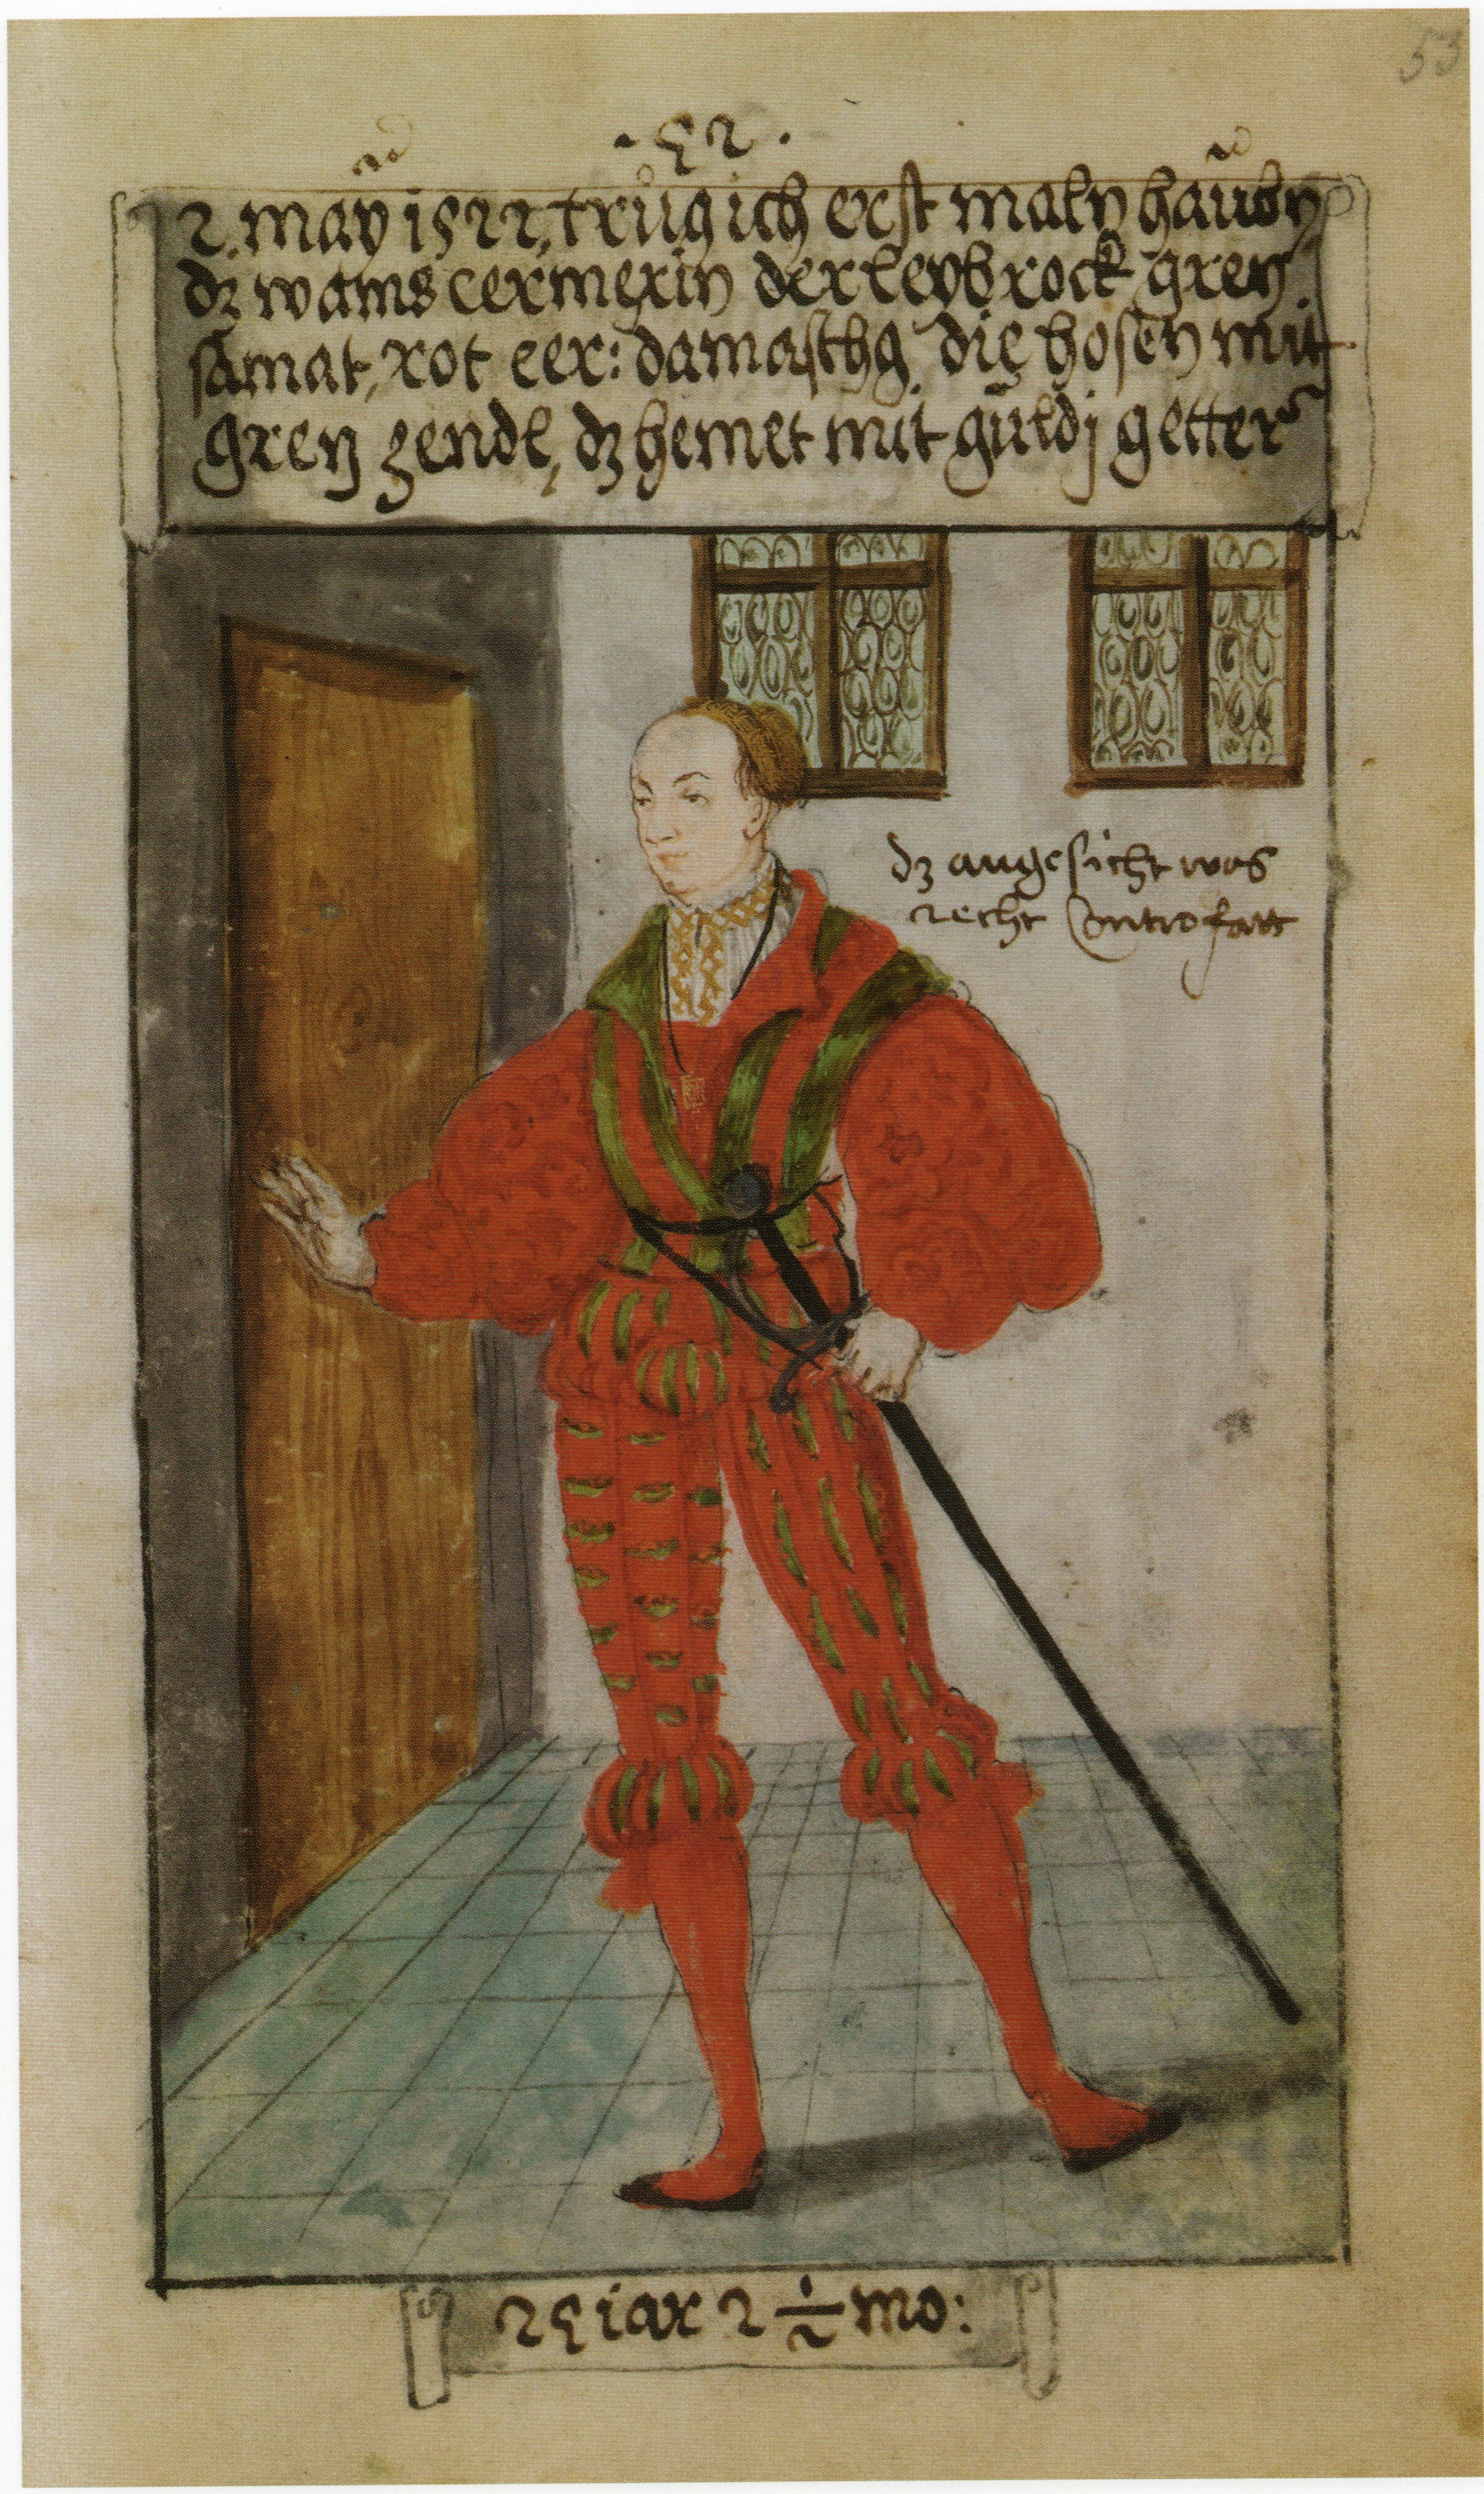 53
· 52 ·
2. may 1522, trůg ich erst maln haubn
dz wams cermexin der leybrock gren
samat, rot cer: damasthg die hosen mit
gren zendl, dz hemet mit guldj getter
dz angesicht was
recht Controfatt
25 iar 2 1/2 mo: